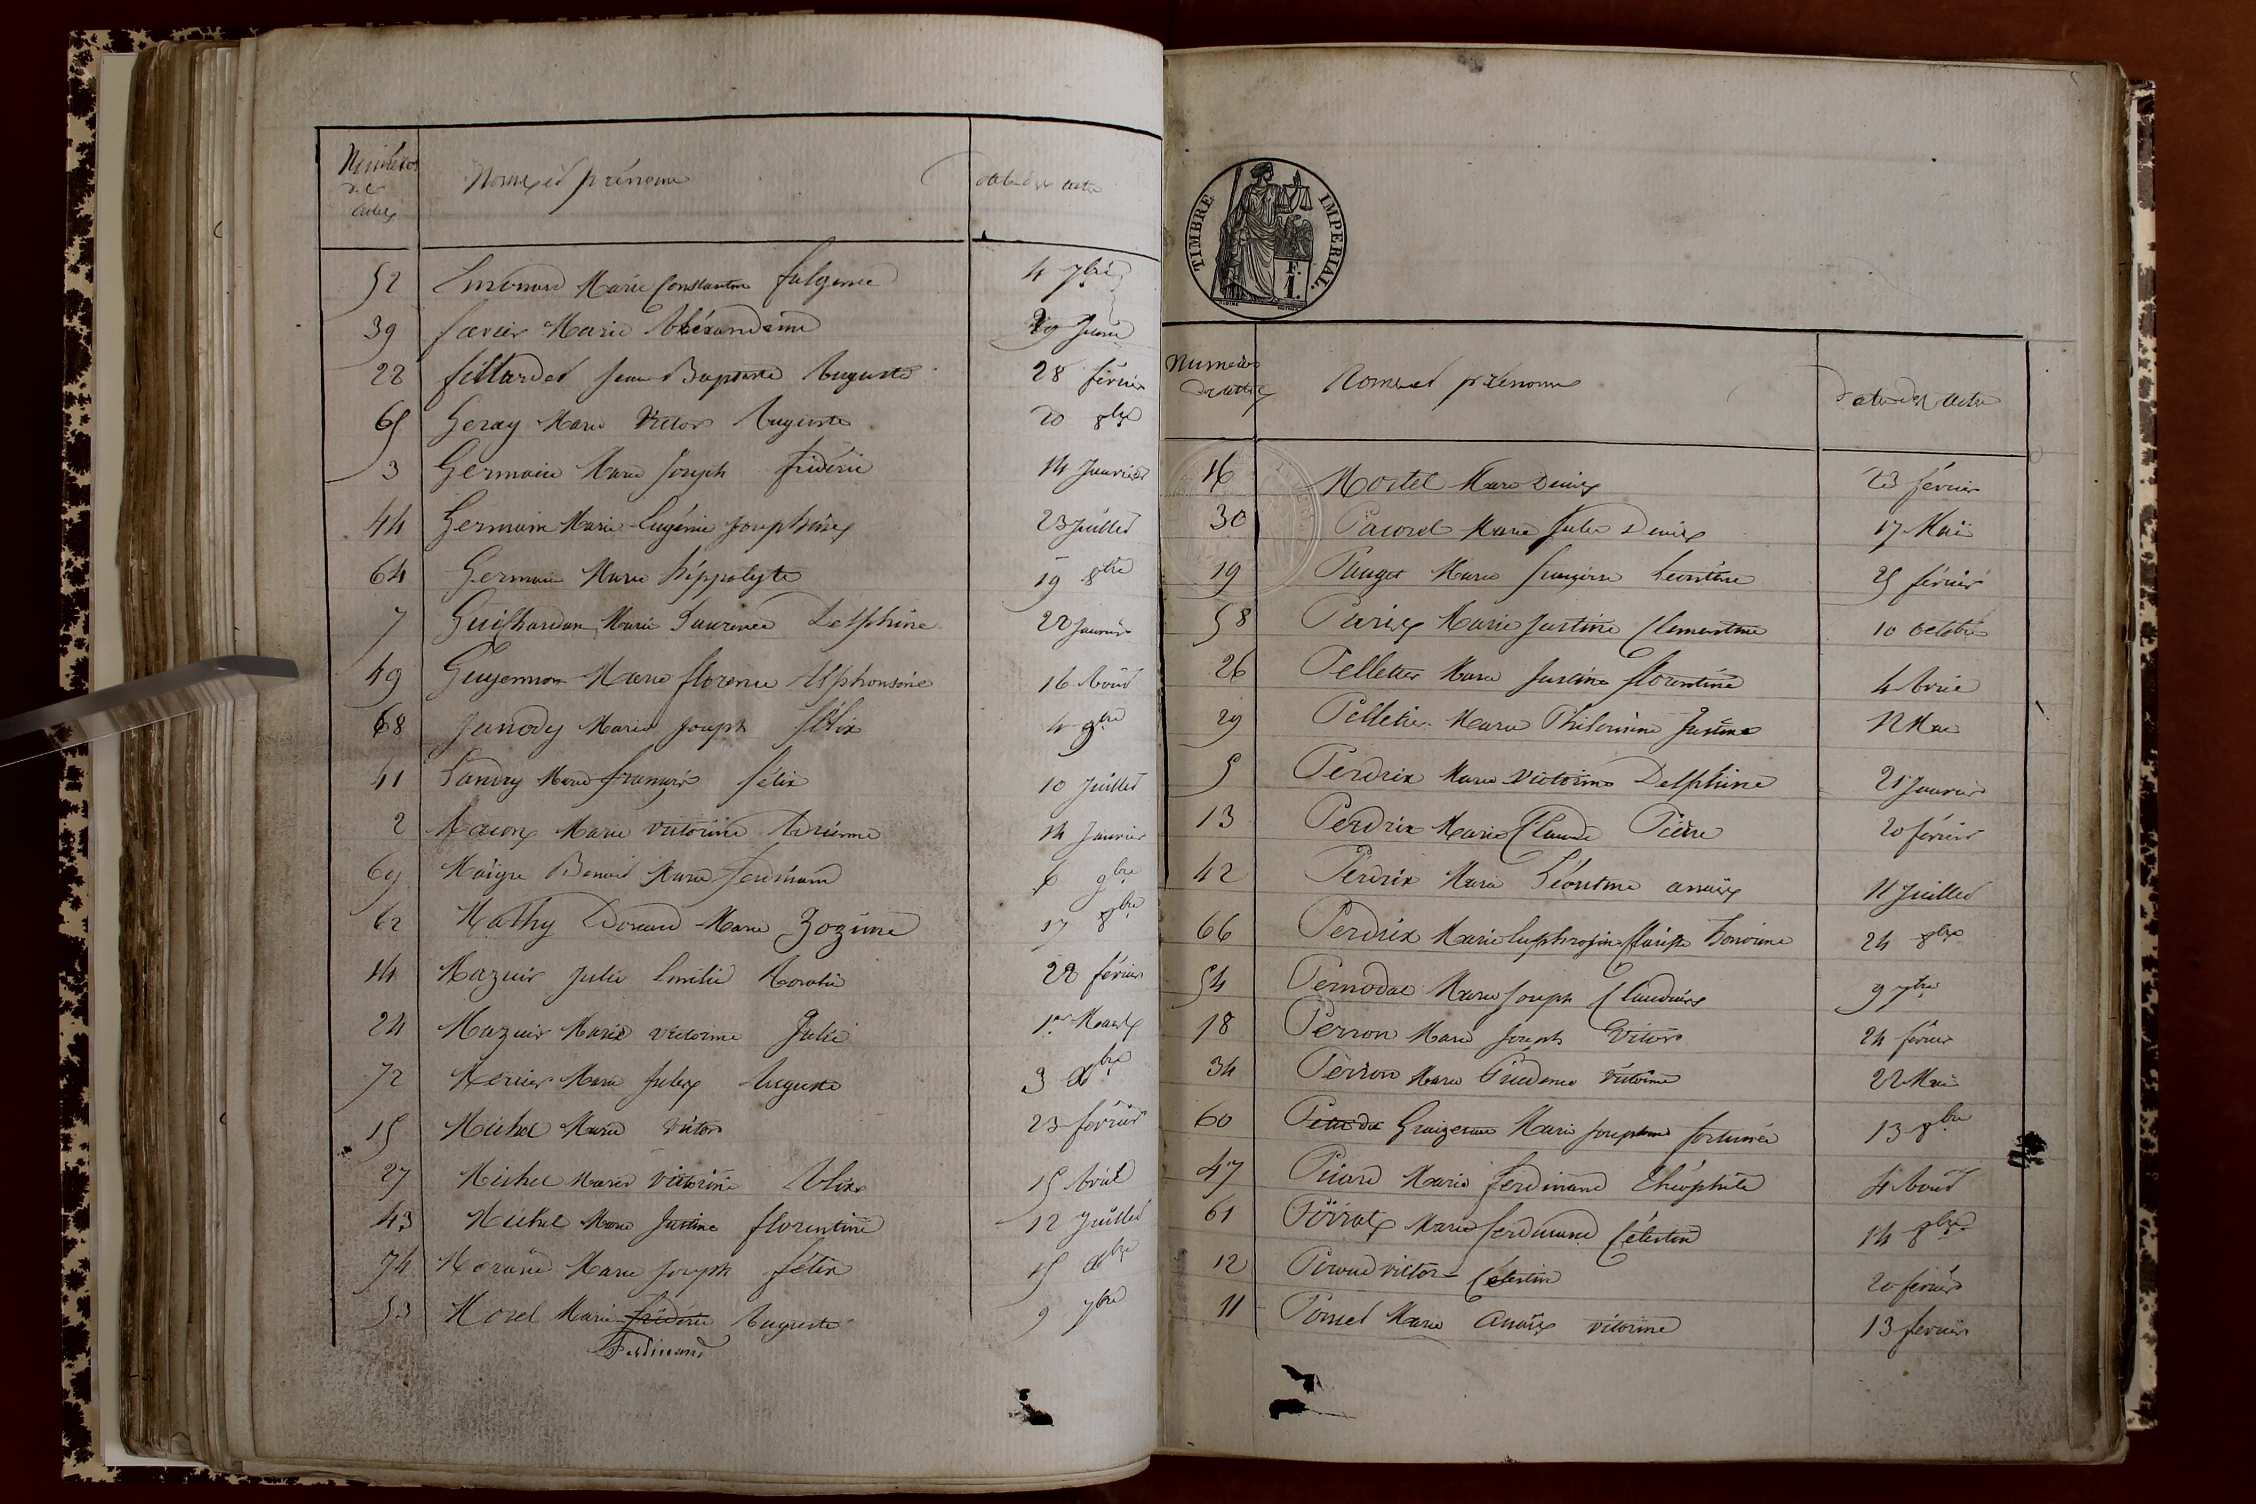 Numéros
des
actes
Noms et prénoms
date des actes
52 Marie Constantin fulgence 4 7bre
39 favier Marie Alexandrine 29 Juin
22 fillardet Jean Baptiste Auguste 28 février
65 Geray Marie Victor Auguste 20 8bre
3 Germain Marie Joseph frédéric 14 Janvier
44 Germain Marie Eugénie Joséphine 23 Juillet
64 Germain Marie hippolyte 19 8bre
7 Marie Laurence Delphine 22 Janvier
49 Guyennon Marie florence Alphonsine 16 Aout
68 Janody Marie Joseph félix 4 9bre
41 Landry Marie françois félix 10 Juillet
2 Marie victorine Adrienne 14 Janvier
69 Maigre Benoit Marie ferdinand 6 9bre
62 Mathy Donard Marie Zozime 17 8bre
14 Mazuir Julie Emilie 22 février
24 Mazuir Marie victorine Julie 1er Mars
72 Mercier Marie Jules Auguste 3 Xbre
15 Michel Marie Victor 23 février
27 Michel Marie Victorine Alix 15 Avril
43 Michel Marie Justine florentine 12 Juillet
74 Morand Marie Joseph félix 15 Xbre
53 Morel Marie frédéric Auguste 9 7bre
Ferdinand
TIMBRE IMPERIAL.
F.
1.
Numéros
des actes
Noms et prénoms
date des actes
16 Mortel Marie Denis 23 février
30 Pacorel Marie Jules Denis 17 Mai
19 Pauget Marie françoise Léontine 25 février
58 Paris Marie Justine Clementine 10 octobre
26 Pelletier Marie Justine florentine 4 Avril
29 Pelletier Marie Philomine Justine 12 Mai
5 Perdrix Marie Victorine Delphine 21 Janvier
13 Perdrix Marie Claude Pierre 20 février
42 Perdrix Marie Léontine anaïs 11 Juillet
66 Perdrix Marie Euphrosine Clarisse honorine 24 8bre
54 Pernodat Marie Joseph Claudius 9 7bre
18 Perron Marie Joseph Victor 24 février
34 Perron Marie Prudence Victorine 22 Mai
60 Marie Josephine fortunée 13 8bre
47 Picard Marie ferdinand théophile 4 Aout
61 Poirat Marie ferdinand Célestin 14 8bre
12 Piroud victor Célestin 20 février
11 Poncet Marie Anaïs victorine 13 fevrier